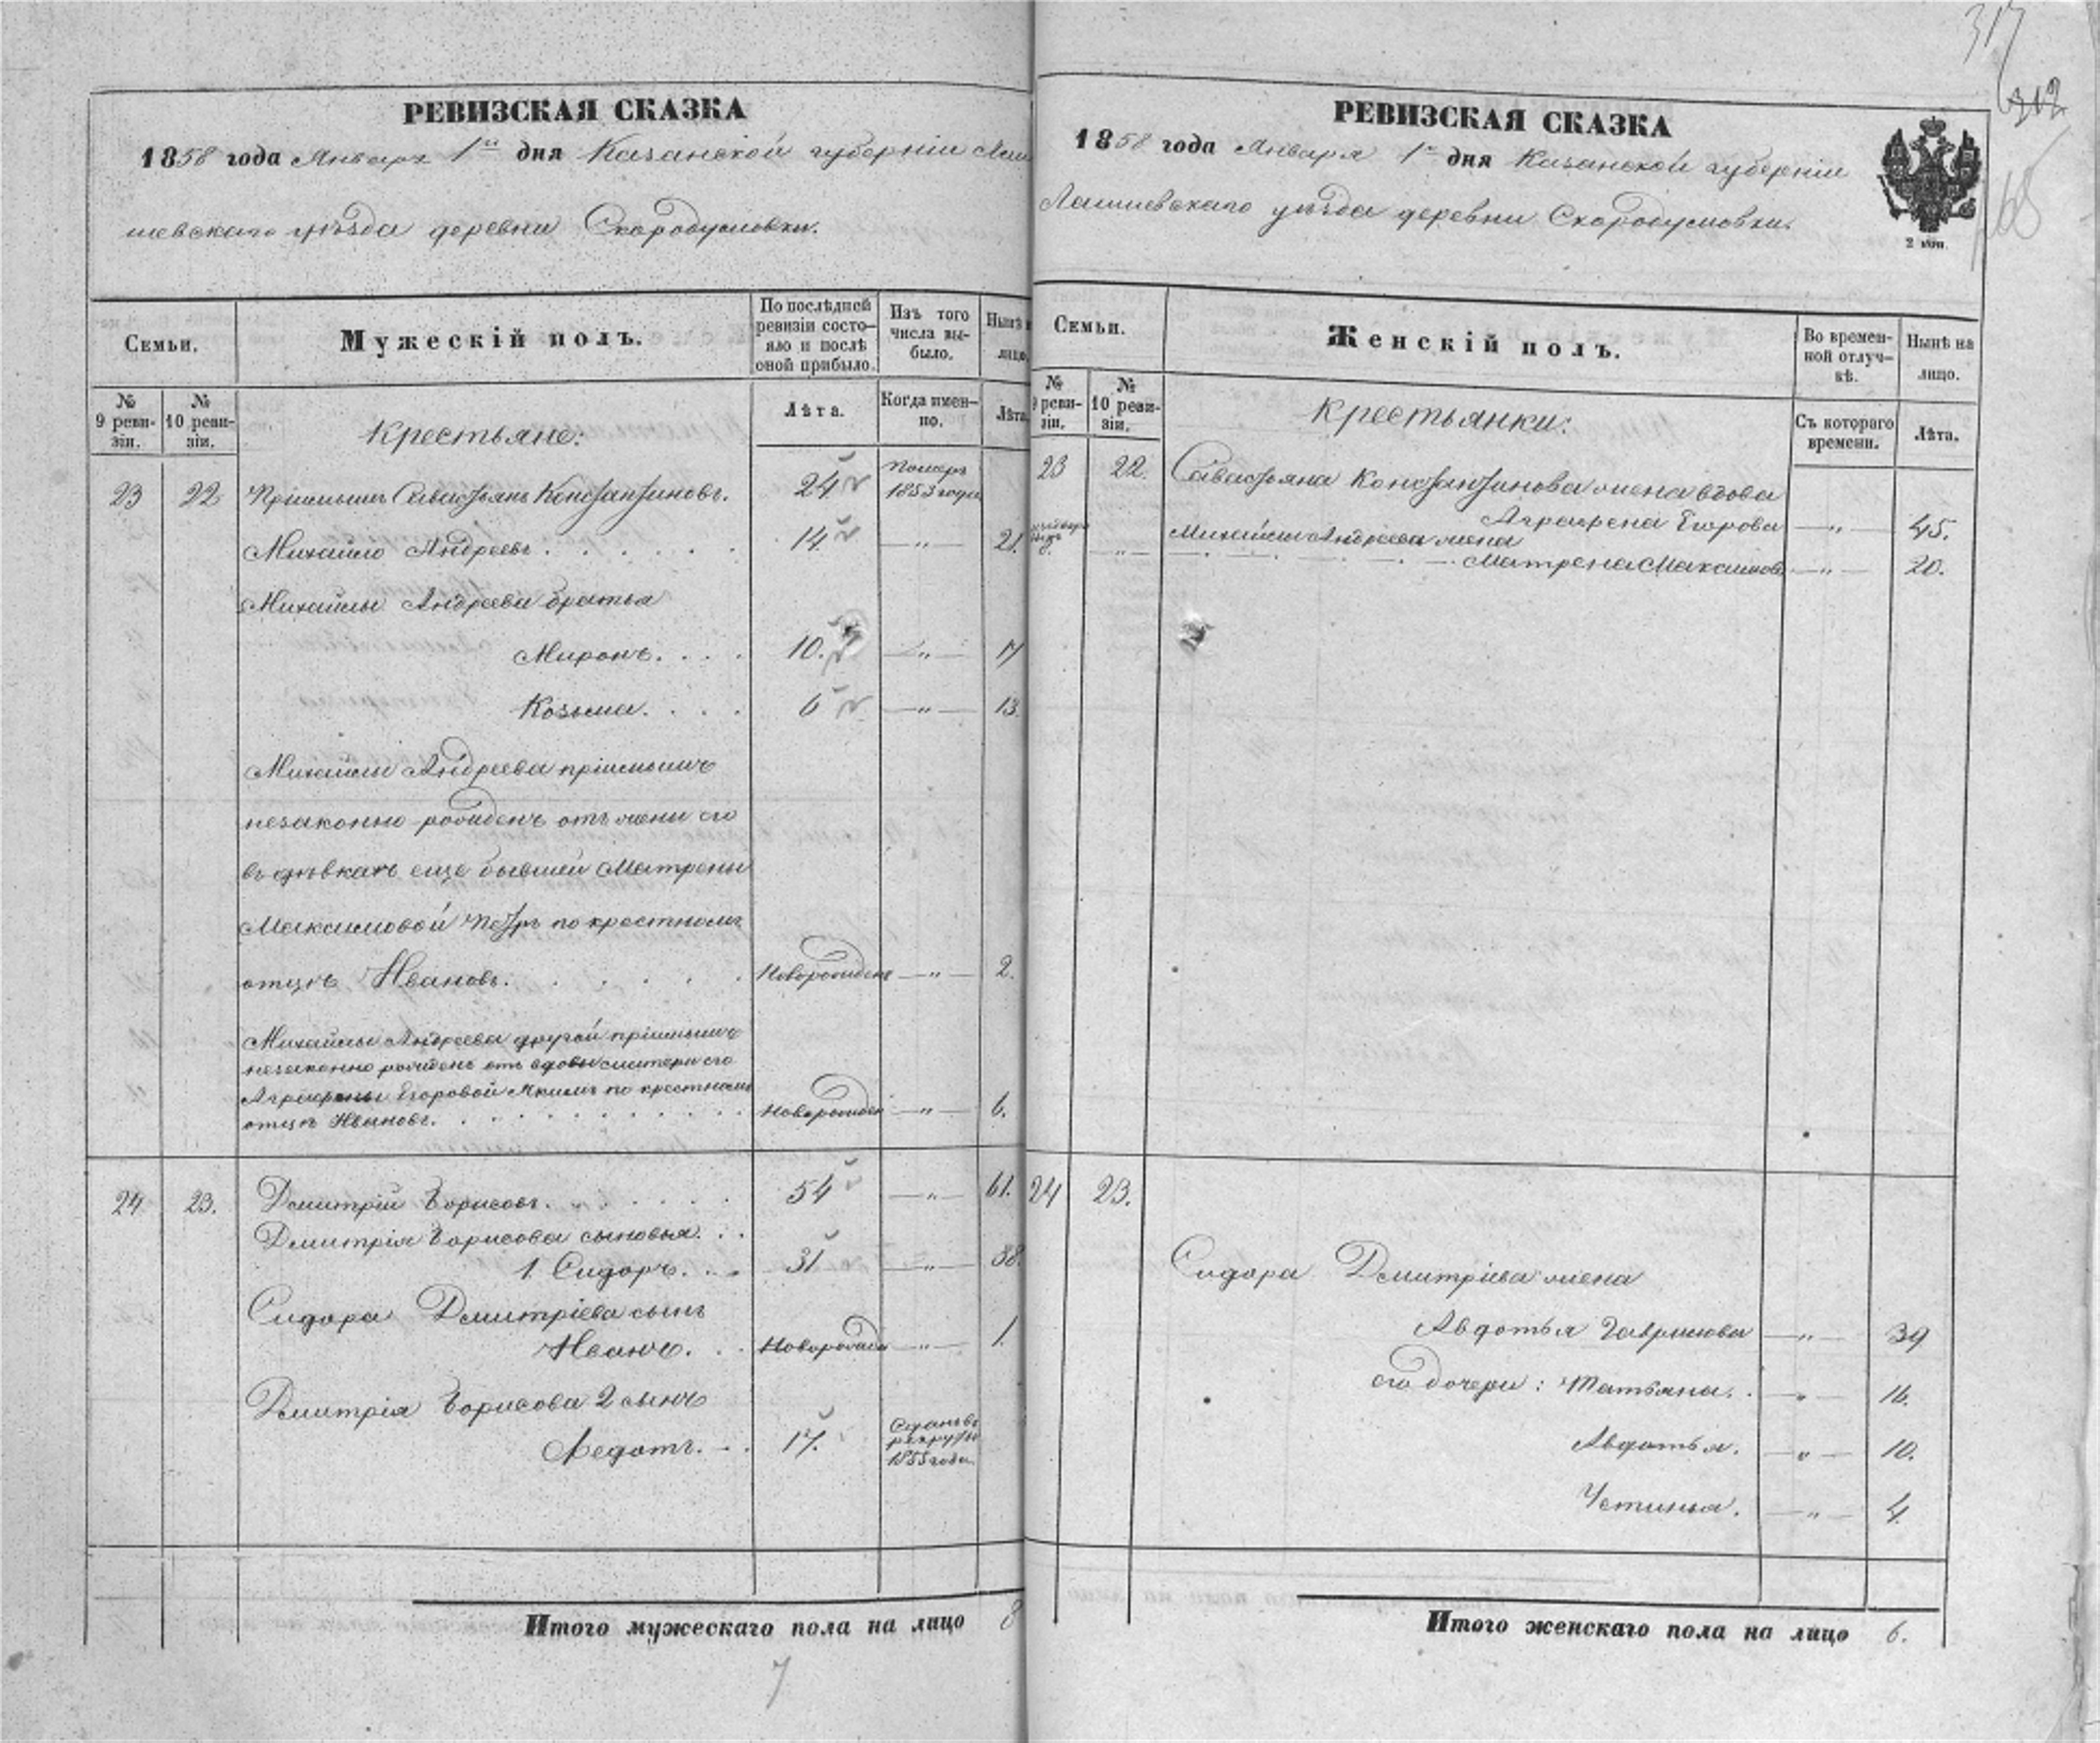 РЕВИЗСКАЯ СКАЗКА
1858 года Января 1го дня Казанской губерніи Лаи
шевскаго уѣзда деревни Скородумовки.
Семьи.
Мужескій полъ.
По послѣдней ревизіи состо-
яло и послѣ оной прибыло.
Изъ того числа вы-
было.
Нынѣ
лицо
№ 9 реви-
зіи.
№ 10 реви-
зіи.
Крестьяне:
Лѣта.
Когда имен-
но.
Лѣта
23 22 Пріемышъ Савастьянъ Константиновъ. 24 Померъ 1853 года
Михайло Андреевъ. 14 — „ — 21.
Михайлы Андреева братья
Миронъ. 10. — „ — 17
Козьма. 6 — „ — 13.
Михайлы Андреева пріемышъ
незаконно рожденъ отъ жены его
въ дѣвкахъ еще бывшей Матрены
Максимовой Петръ по крестному
отцу Ивановъ. Новорожденъ — „ — 2.
Михайлы Андреева другой пріемышъ
незаконно рожденъ отъ вдовы матери его
Аграфены Егоровой Якимъ по крестному
отцу Ивановъ. Новорожден — „ — 6.
24 23. Дмитрій Борисовъ. 54 — „ — 61.
Дмитрія Борисова сыновья.
1. Сидоръ. 31 — „ — 38.
Сидора Дмитріева сынъ
Иванъ. Новорожден — „ — 1.
Дмитрія Борисова 2 сынъ
Федотъ. 17. Отданъ въ рекруты 1855 года.
Итого мужескаго пола на лицо 8
7
317
312
РЕВИЗСКАЯ СКАЗКА
1858 года Января 1го дня Казанской губерніи
Лаишевскаго уѣзда деревни Скородумовки.
2 коп.
Семьи.
Женскій полъ.
Во времен-
ной отлуч-
кѣ.
Нынѣ на
лицо.
№ 9 реви-
зіи.
№ 10 реви-
зіи.
Крестьянки:
Съ котораго
времени.
Лѣта.
23 22. Савастьяна Константинова жена вдова
Аграфена Егорова — „ — 45.
Михайлы Андреева жена
„ Матрена Максимова — „ — 20.
24 23.
Сидора Дмитріева жена
Авдотья Гаврилова — „ — 39
его дочери: Татьяна. — „ — 16.
Авдотья. — „ — 10.
Устинья. — „ — 4.
Итого женскаго пола на лицо 6.